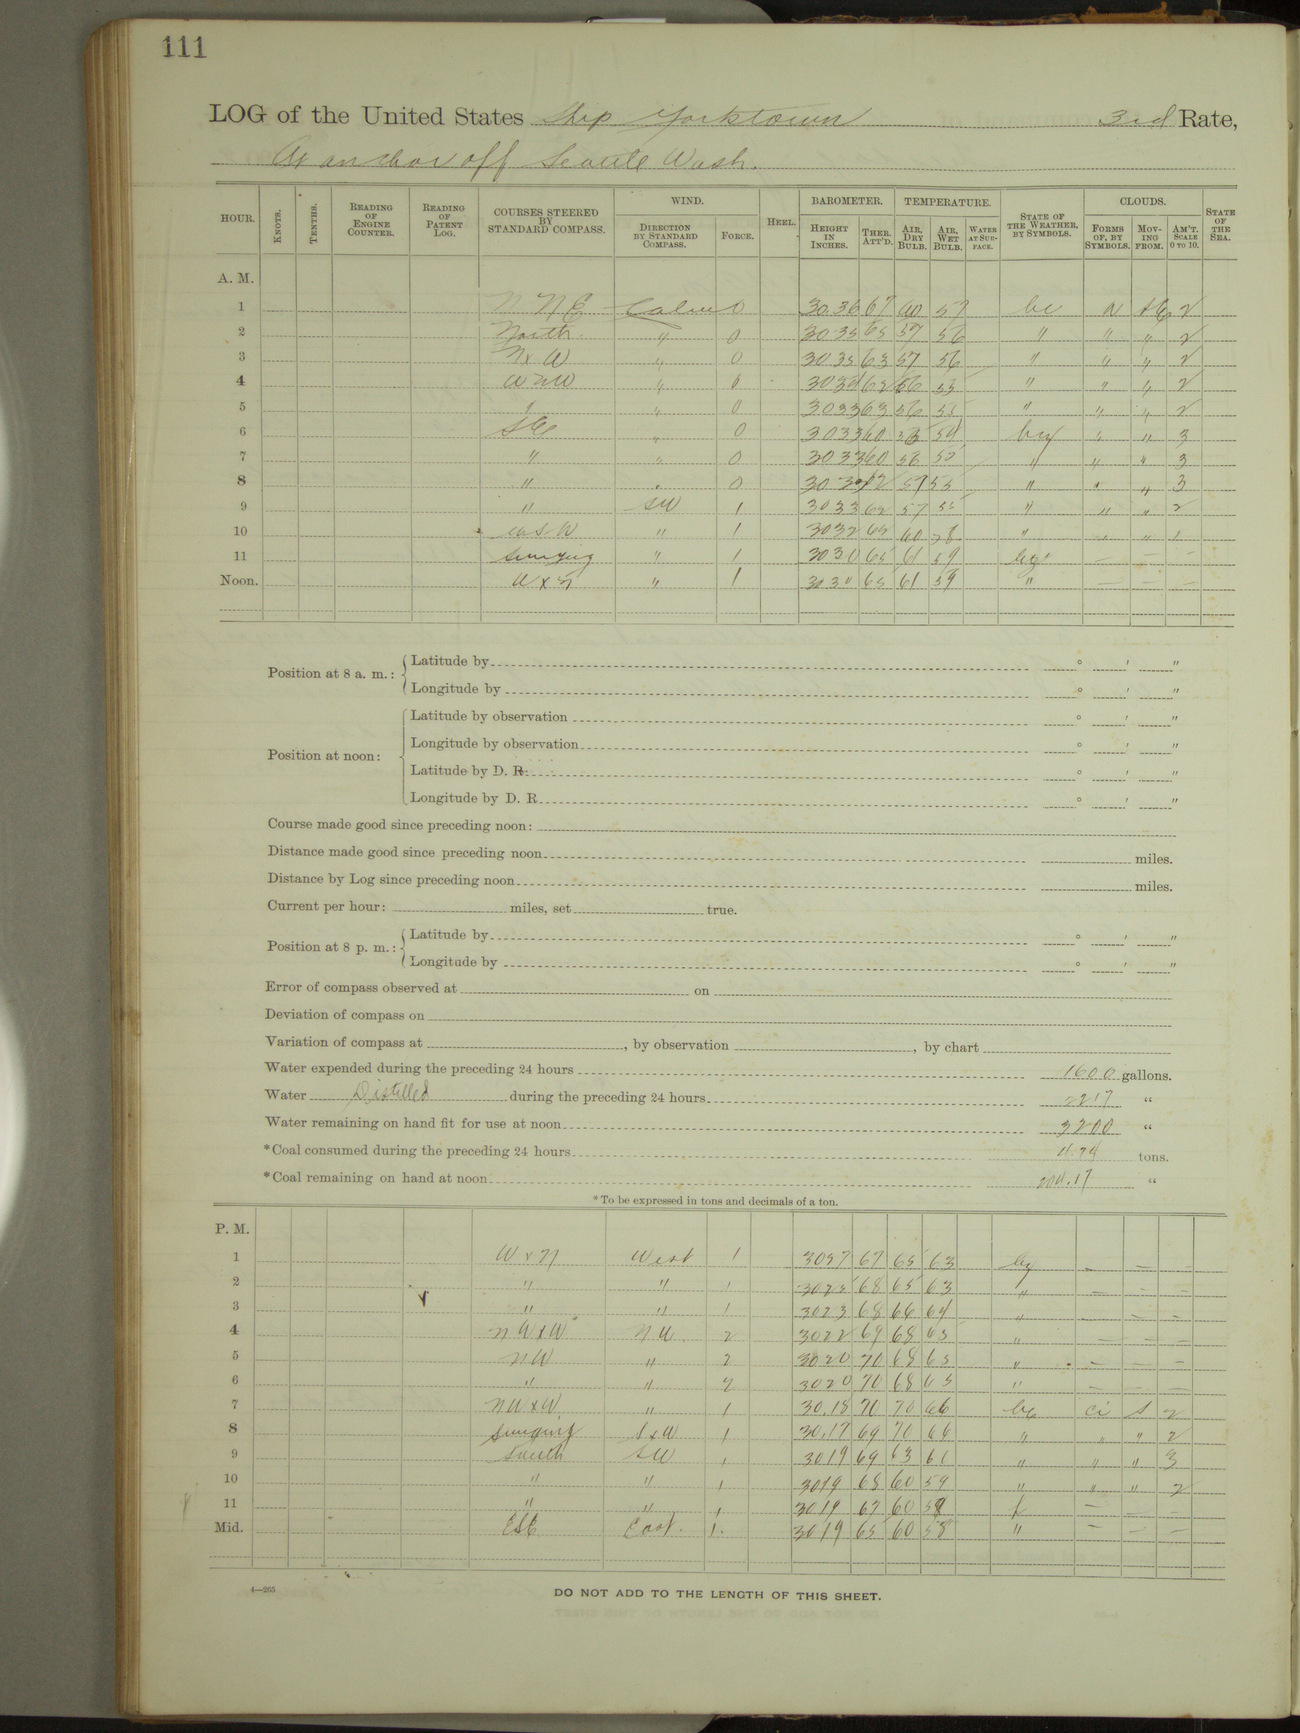 111
LOG of the United States Ship Yorktown 3rd Rate,
At anchor off Seattle Wash.
HOUR. KNOTS. TENTHS. READING OF ENGINE COUNTER. READING OF PATENT LOG. COURSES STEERED BY STANDARD COMPASS. WIND. DIRECTION BY STANDARD COMPASS. FORCE. HEEL. BAROMETER. HEIGHT IN INCHES. THER. ATT'D. TEMPERATURE. AIR, DRY BULB. AIR, WET BULB. WATER AT SURFACE. STATE OF THE WEATHER, BY SYMBOLS. CLOUDS. FORMS OF, BY SYMBOLS. MOVING FROM. AM'T. SCALE 0 TO 10. STATE OF THE SEA.
A. M.
1 NNE Calm 0 30.36 67 60 57 bc SE 2
2 North " 0 30 35 65 57 56 " " " 2
3 NxW " 0 30 35 63 57 56 " " " 2
4 WNW " 0 30 34 62 56 55 " " " 2
5 " " 0 30 33 63 56 55 " " " 2
6 SE " 0 30 33 60 54 " " 3
7 " " 0 30 33 60 56 " " " 3
8 " " 0 62 57 55 " " " 3
9 " SW 1 30 33 62 57 55 " " " 2
10 WSW " 1 30 32 65 60 58 " " " 1
11 Swinging " 1 30 30 65 61 59 — — -
Noon. WxN " 1 30 30 65 61 59 " — — —
Position at 8 a. m.: Latitude by ° ' "
Longitude by ° ' "
Position at noon: Latitude by observation ° ' "
Longitude by observation ° ' "
Latitude by D. R. ° ' "
Longitude by D. R. ° ' "
Course made good since preceding noon:
Distance made good since preceding noon miles.
Distance by Log since preceding noon miles.
Current per hour: miles, set true.
Position at 8 p. m.: Latitude by ° ' "
Longitude by ° ' "
Error of compass observed at on
Deviation of compass on
Variation of compass at , by observation , by chart
Water expended during the preceding 24 hours 1600 gallons.
Water Distilled during the preceding 24 hours 2217 "
Water remaining on hand fit for use at noon 3200 "
*Coal consumed during the preceding 24 hours 4.74 tons.
*Coal remaining on hand at noon 204.17 "
* To be expressed in tons and decimals of a ton.
P. M.
1 WxN West 1 67 65 63 — — -
2 " " 1 30 25 68 65 63 " — — —
3 " " 1 30 23 68 66 64 " — —
4 NWxW NW 2 30 22 69 68 65 " — — —
5 NW " 2 30 20 70 68 65 " — — —
6 " " 2 30 20 70 68 65 " — — —
7 NWxW " 1 30.18 70 70 66 bc ci S 2
8 Swinging SxW 1 30.17 69 70 66 " " " 2
9 South SW 1 30 19 69 63 61 " " " 3
10 " " 1 30 19 68 60 59 " " " 2
11 " " 1 30 19 67 60 f — — —
Mid. ESE East. 1. 30 19 65 60 58 " — — —
4—265
DO NOT ADD TO THE LENGTH OF THIS SHEET.